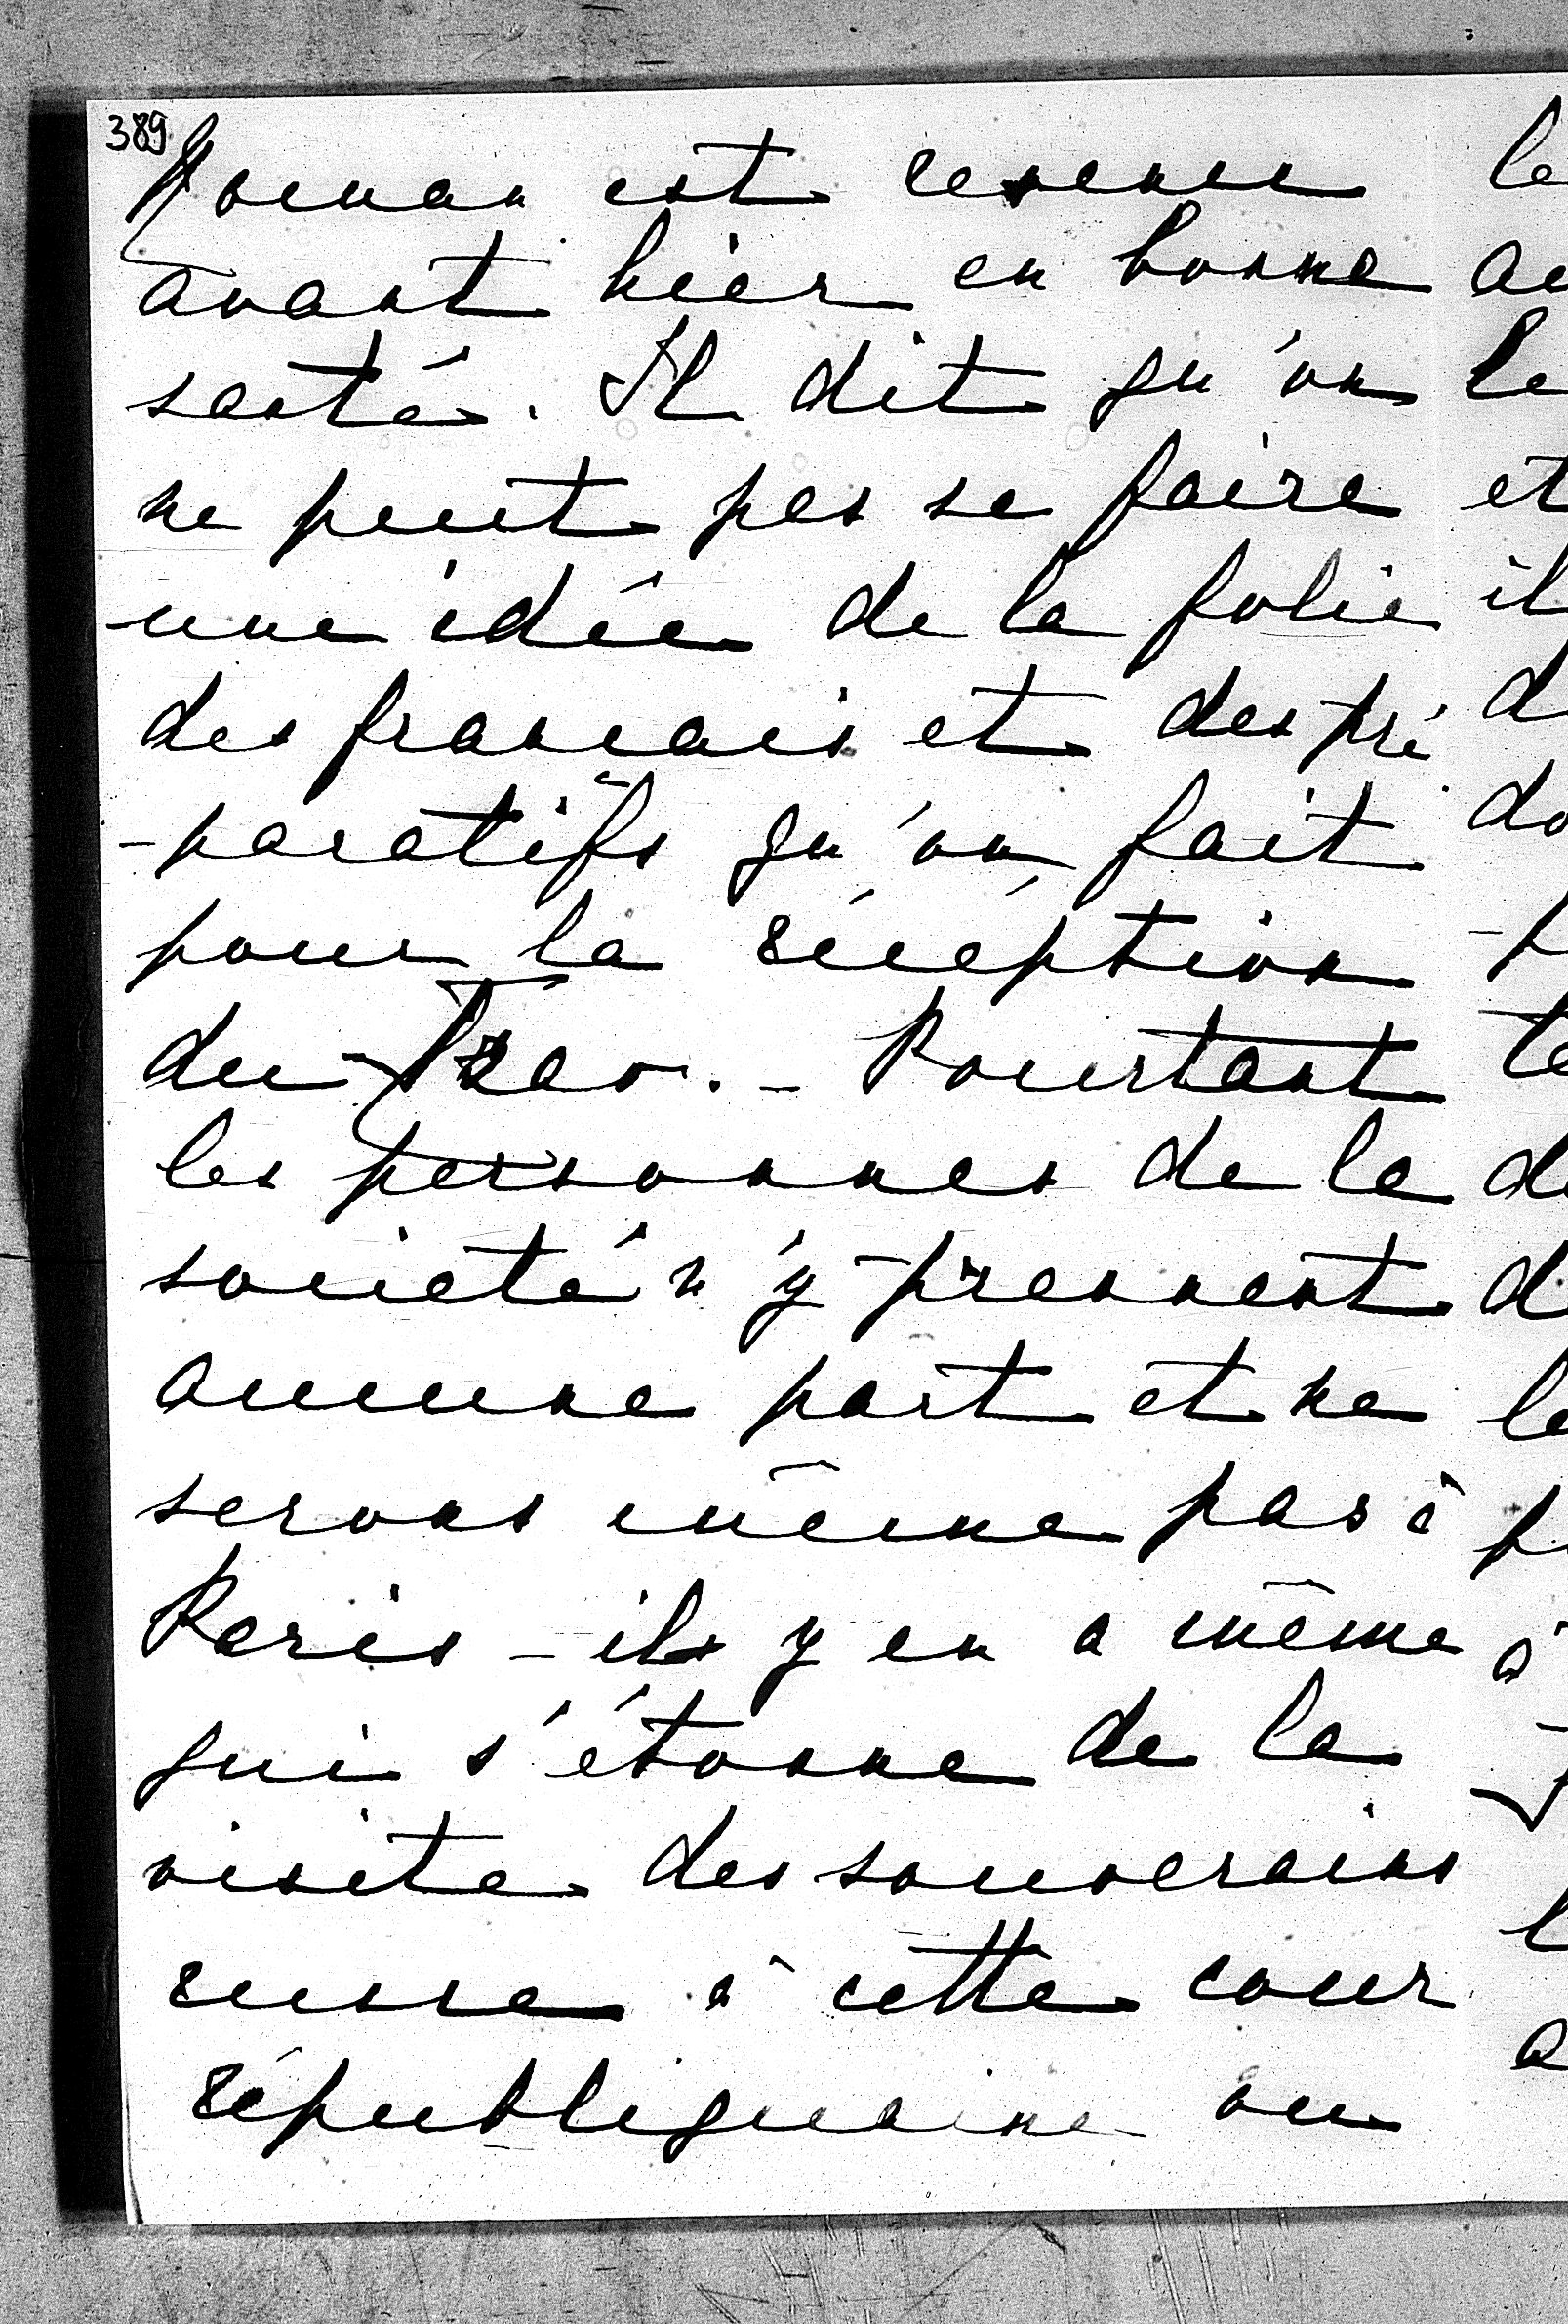 389
Roman est revenu
avant hier en bonne
santé. Il dit qu'on
ne peut pas se faire
une idée de la folie
des francais et des pré
-paratifs qu'on fait
pour la réception
du Tzar. - Pourtant
les personnes de la
societé n'y prennent
aucune part et ne
serons même pas à
Paris - ils y en a même
qui s'étonne de la
visite des souverains
russe à cette cour
républiquaine ou